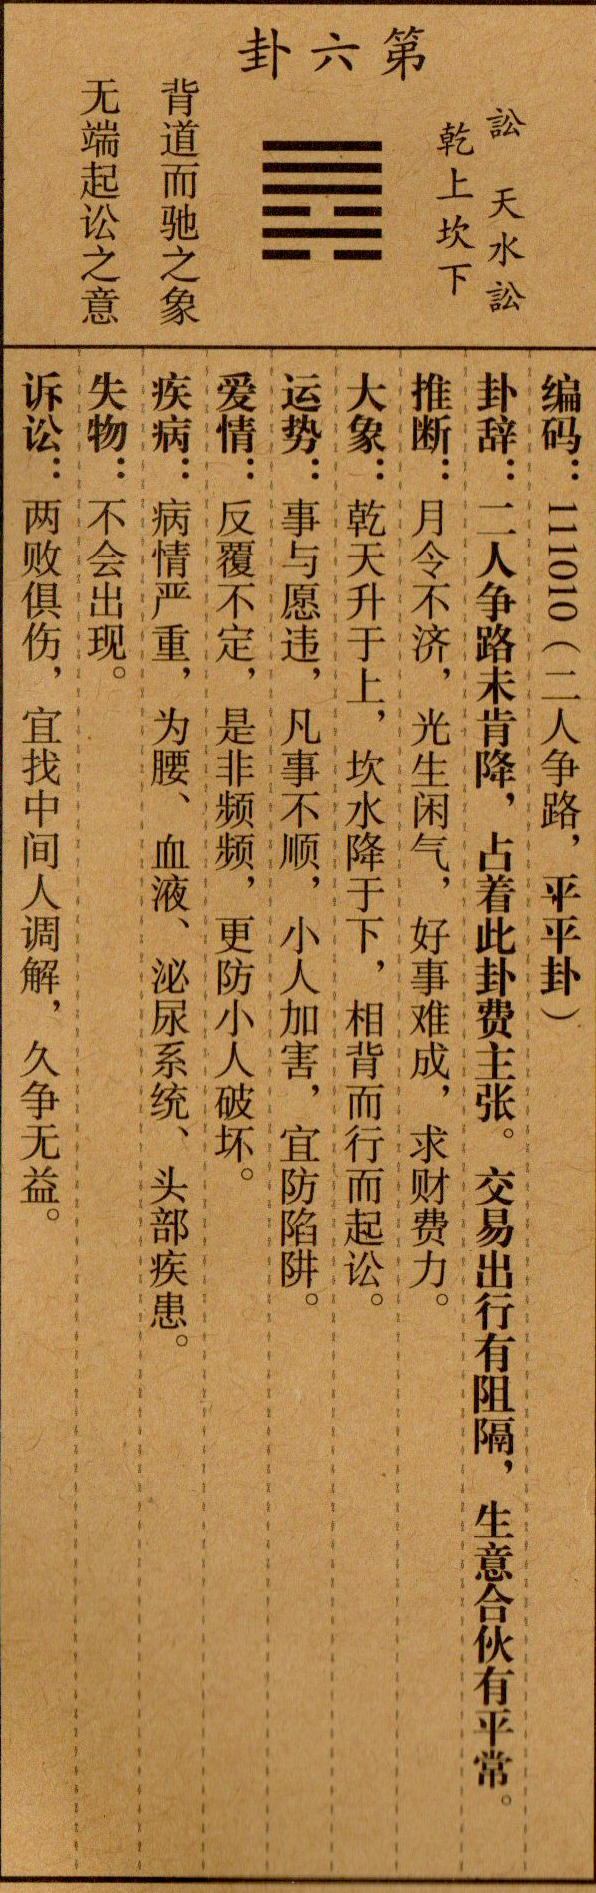 第六卦
訟 天水訟
乾上坎下
背道而驰之象
无端起讼之意
编码：111010（二人争路，平平卦）
卦辞：二人争路未肯降，占着此卦费主张。交易出行有阻隔，生意合伙有平常。
推断：月令不济，光生闲气，好事难成，求财费力。
大象：乾天升于上，坎水降于下，相背而行而起讼。
运势：事与愿违，凡事不顺，小人加害，宜防陷阱。
爱情：反覆不定，是非频频，更防小人破坏。
疾病：病情严重，为腰、血液、泌尿系统、头部疾患。
失物：不会出现。
诉讼：两败俱伤，宜找中间人调解，久争无益。